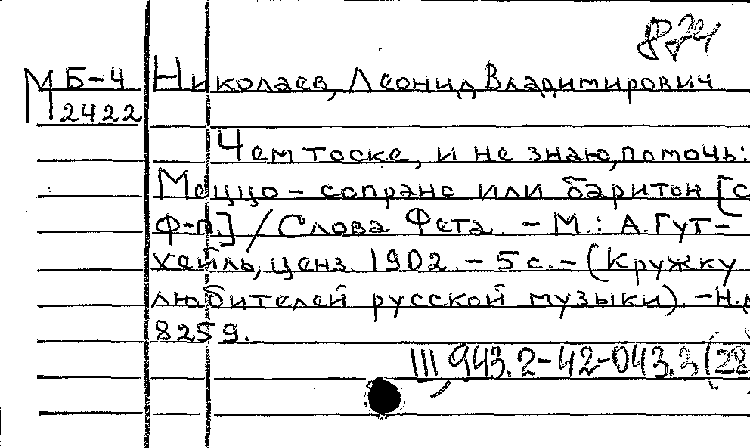 874
М Б-4 Николаев, Леонид Владимирович
2422
Чем тоске, и не знаю, помочь:
Меццо-сопрано или баритон [с
ф-п.] / Слова Фета. - М.: А. Гут-
хейль, ценз. 1902. - 5 с. - (Кружку
любителей русской музыки). - Н.д.
8259.
III 943.2-42-043.3 (28